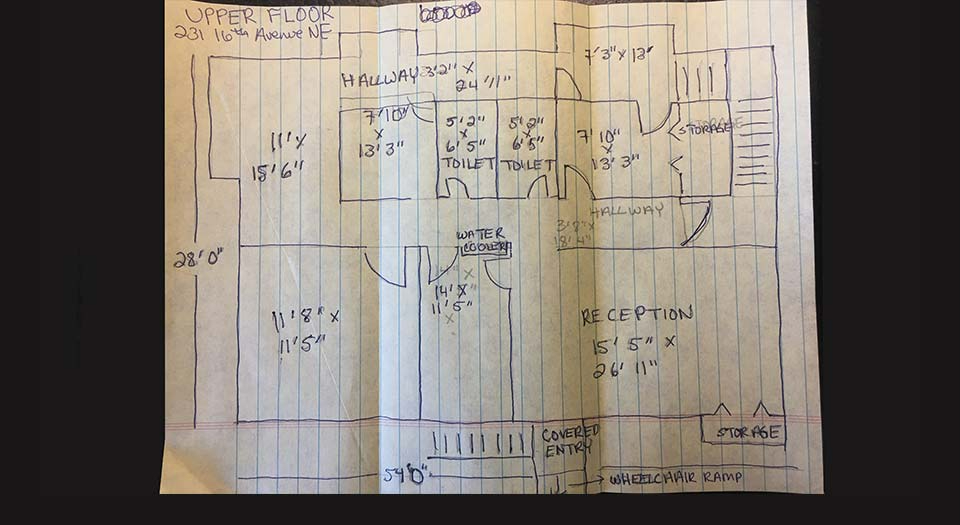 UPPER FLOOR
231 16th Avenue NE
7'3" x 13'
HALLWAY 3'2" x
24'11"
11' x
15'6"
7'10"
x
13'3"
5'2"
x
6'5"
TOILET
5'2"
x
6'5"
TOILET
7'10"
x
13'3"
STORAGE
HALLWAY
3'8" x
18'4"
WATER
COOLER
28'0"
14' x
11'5"
11'8" x
11'5"
RECEPTION
15'5" x
26'11"
STORAGE
COVERED
ENTRY
54'0"
WHEELCHAIR RAMP